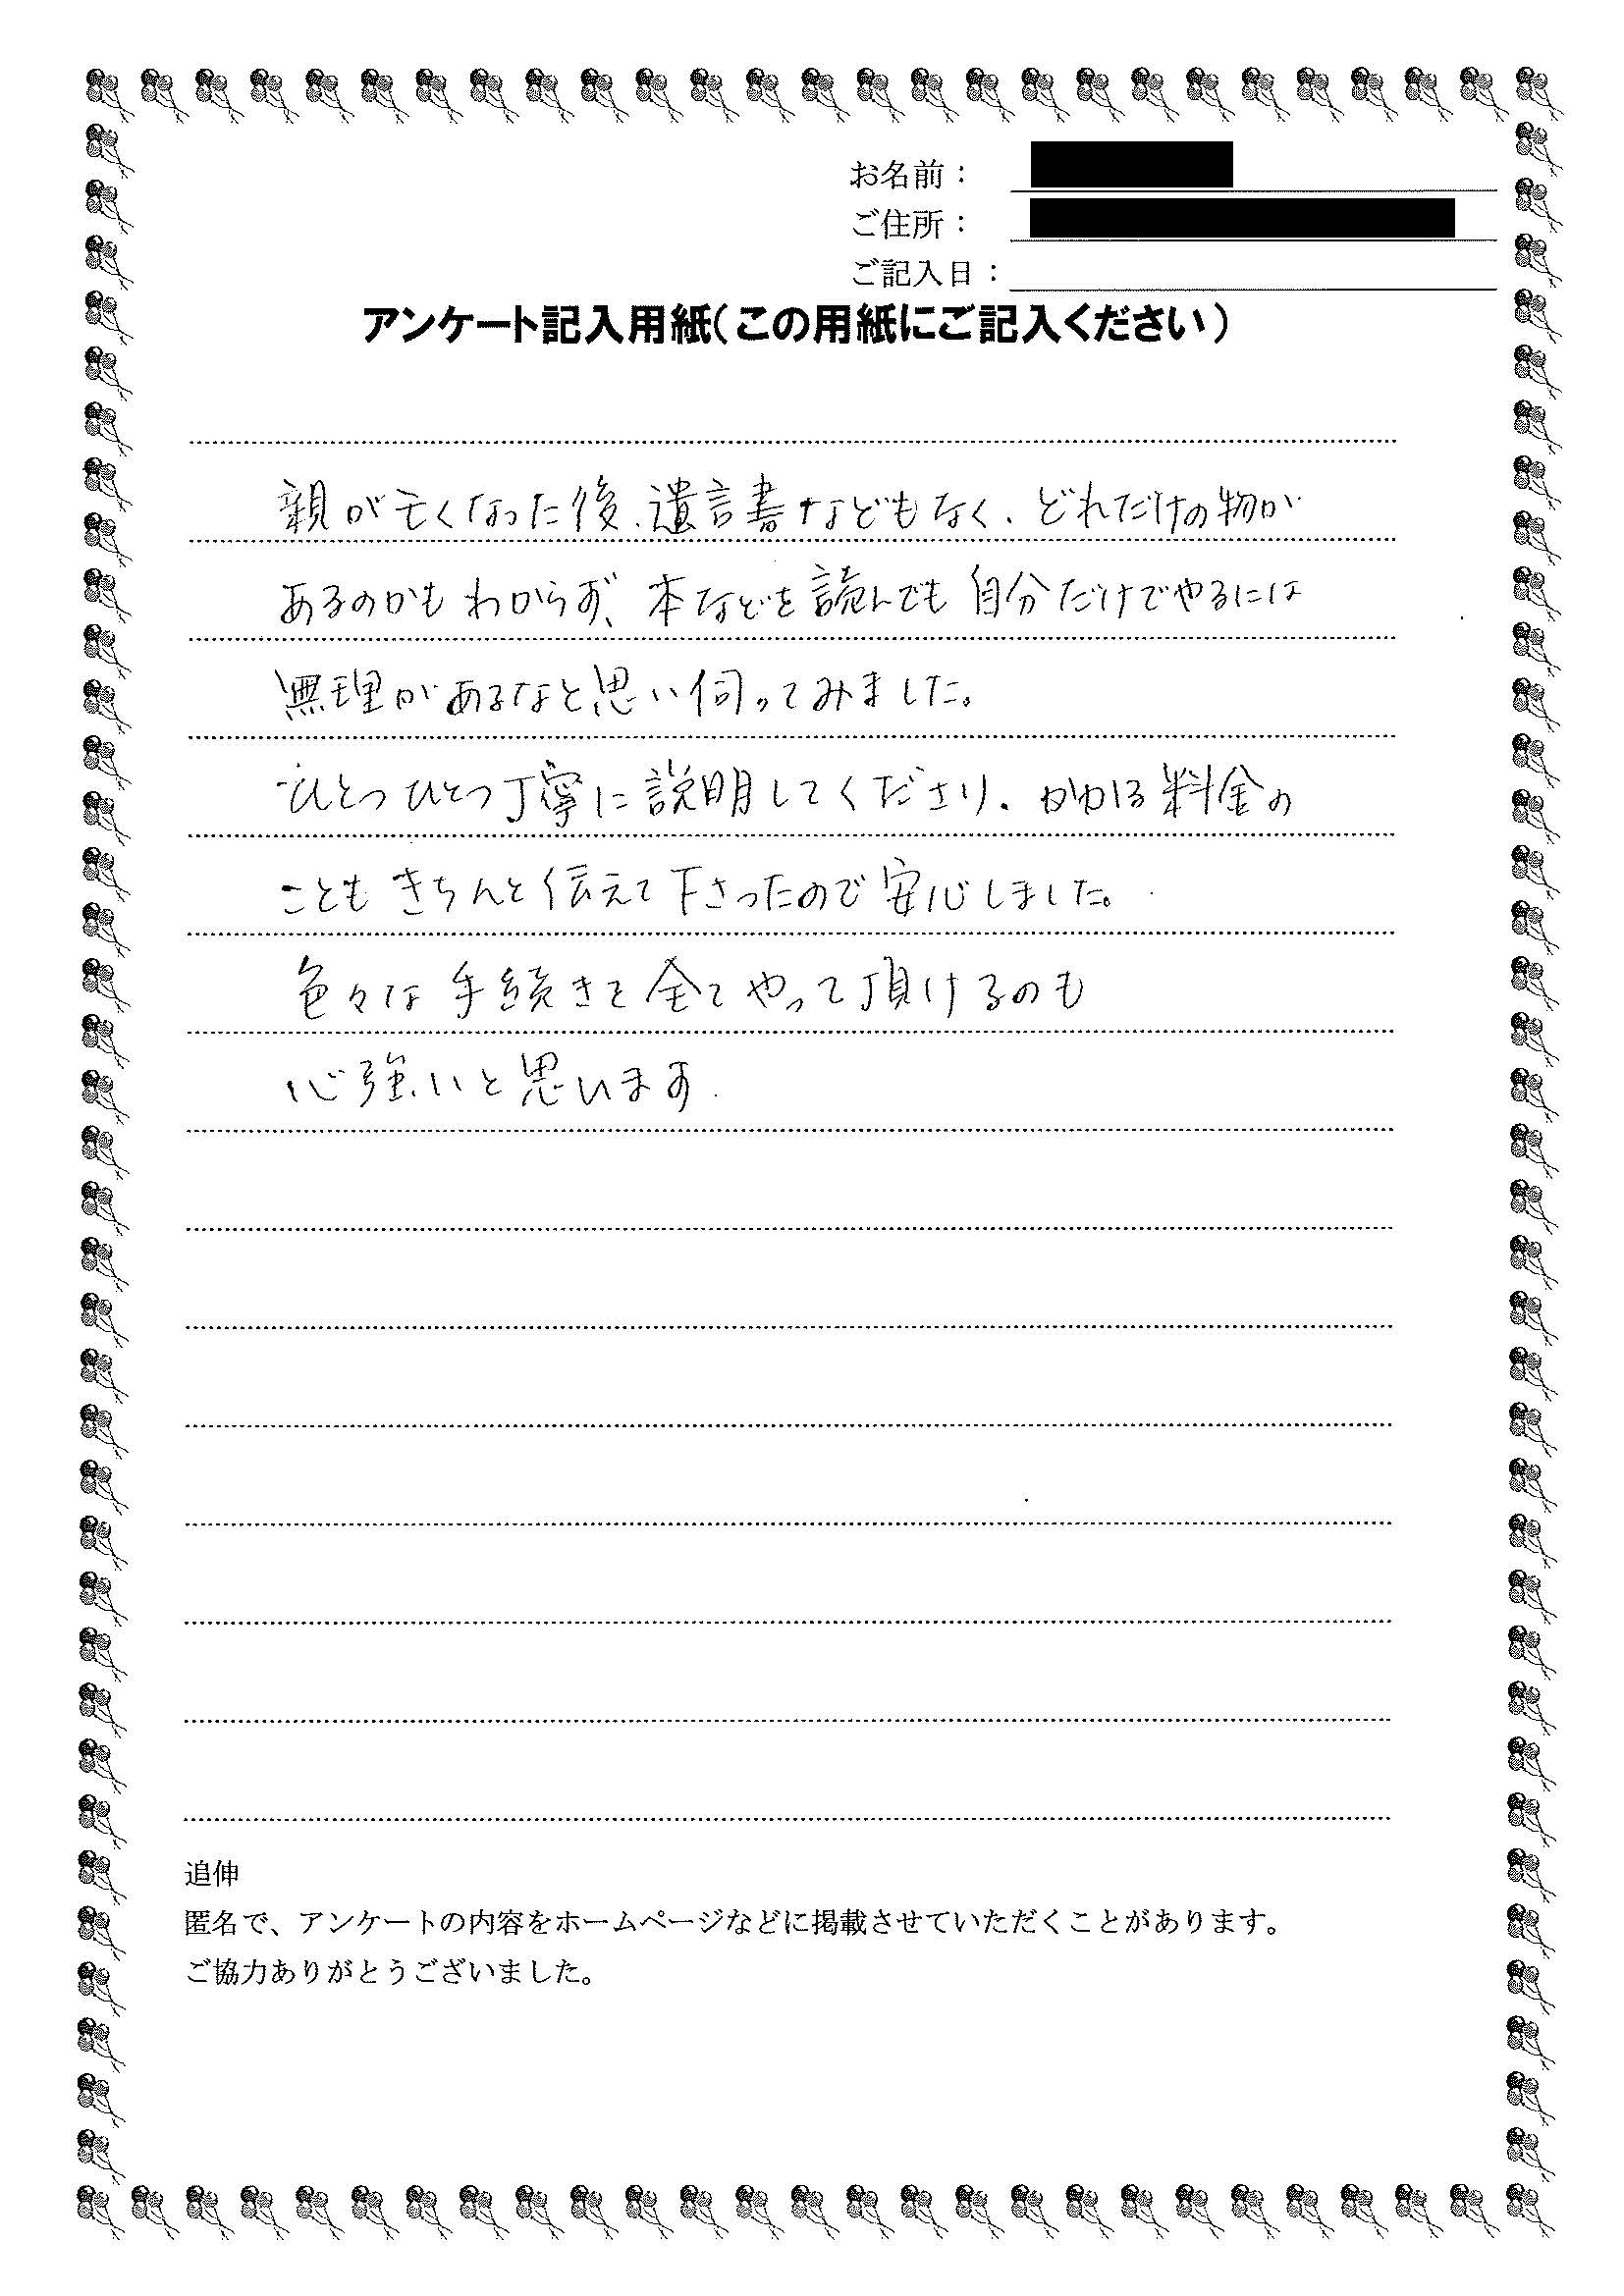 お名前：
ご住所：
ご記入日：
アンケート記入用紙（この用紙にご記入ください）
親が亡くなった後、遺言書などもなく、どれだけの物が
あるのかもわからず、本などを読んでも自分だけでやるには
無理があるなと思い伺ってみました。
ひとつひとつ丁寧に説明してくださり、かかる料金の
こともきちんと伝えて下さったので安心しました。
色々な手続きを全てやって頂けるのも
心強いと思います。
追伸
匿名で、アンケートの内容をホームページなどに掲載させていただくことがあります。
ご協力ありがとうございました。